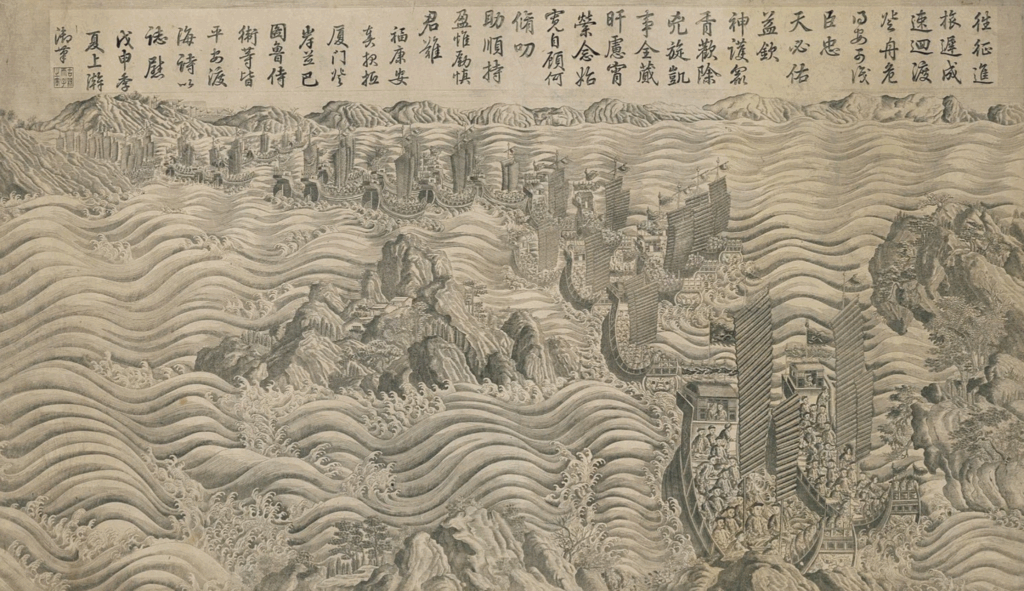 往征進
旅遲成
速迴渡
登舟危
得安可
臣忠
天必佑
益欽
神護衆
胥歡除
兇旋凱
事全蕆
旰慮宵
縈念始
寬自顧何
脩叨
助順持
盈惟勵慎
君難
福康安
奏報抵
厦门登
岸並巴
圖魯侍
衛等皆
平安渡
海詩以
誌慰
戊申季
夏上澣
御筆